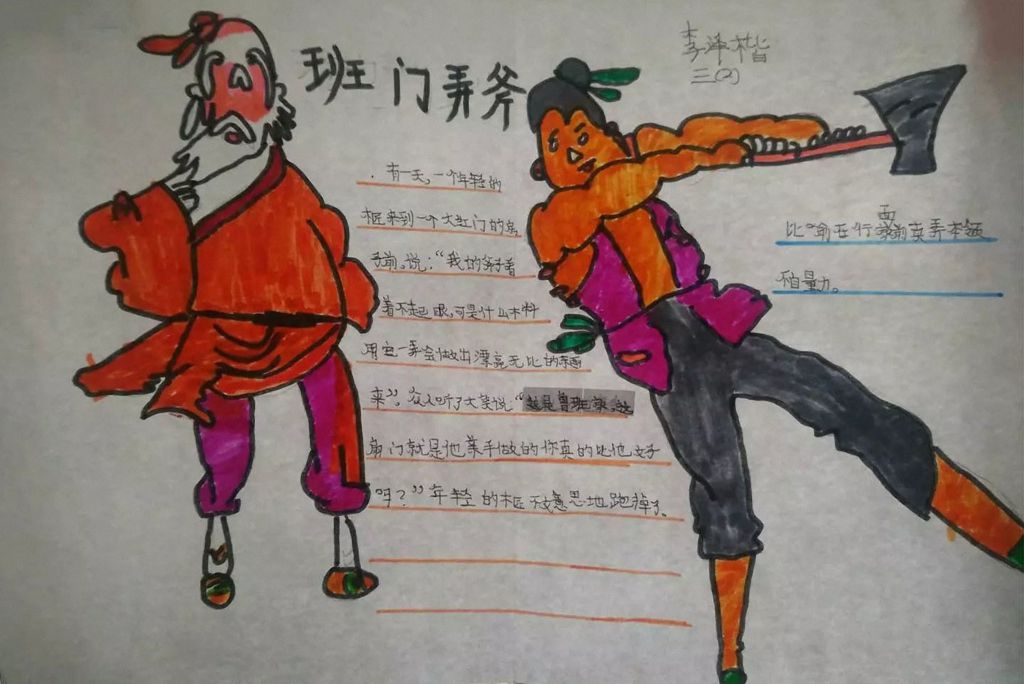 班门弄斧
李泽楷
三(2)
有一天,一个年轻的
木匠来到一个大红门的房
子前,说:“我的斧子看
着不起眼,可是什么木料
用它一弄会做出漂亮无比的东西
来”。众人听了大笑说“这是鲁班家,这
扇门就是他亲手做的你真的比他好
吗?”年轻的木匠不好意思地跑掉了。
比喻在行家面前卖弄本领
不自量力。